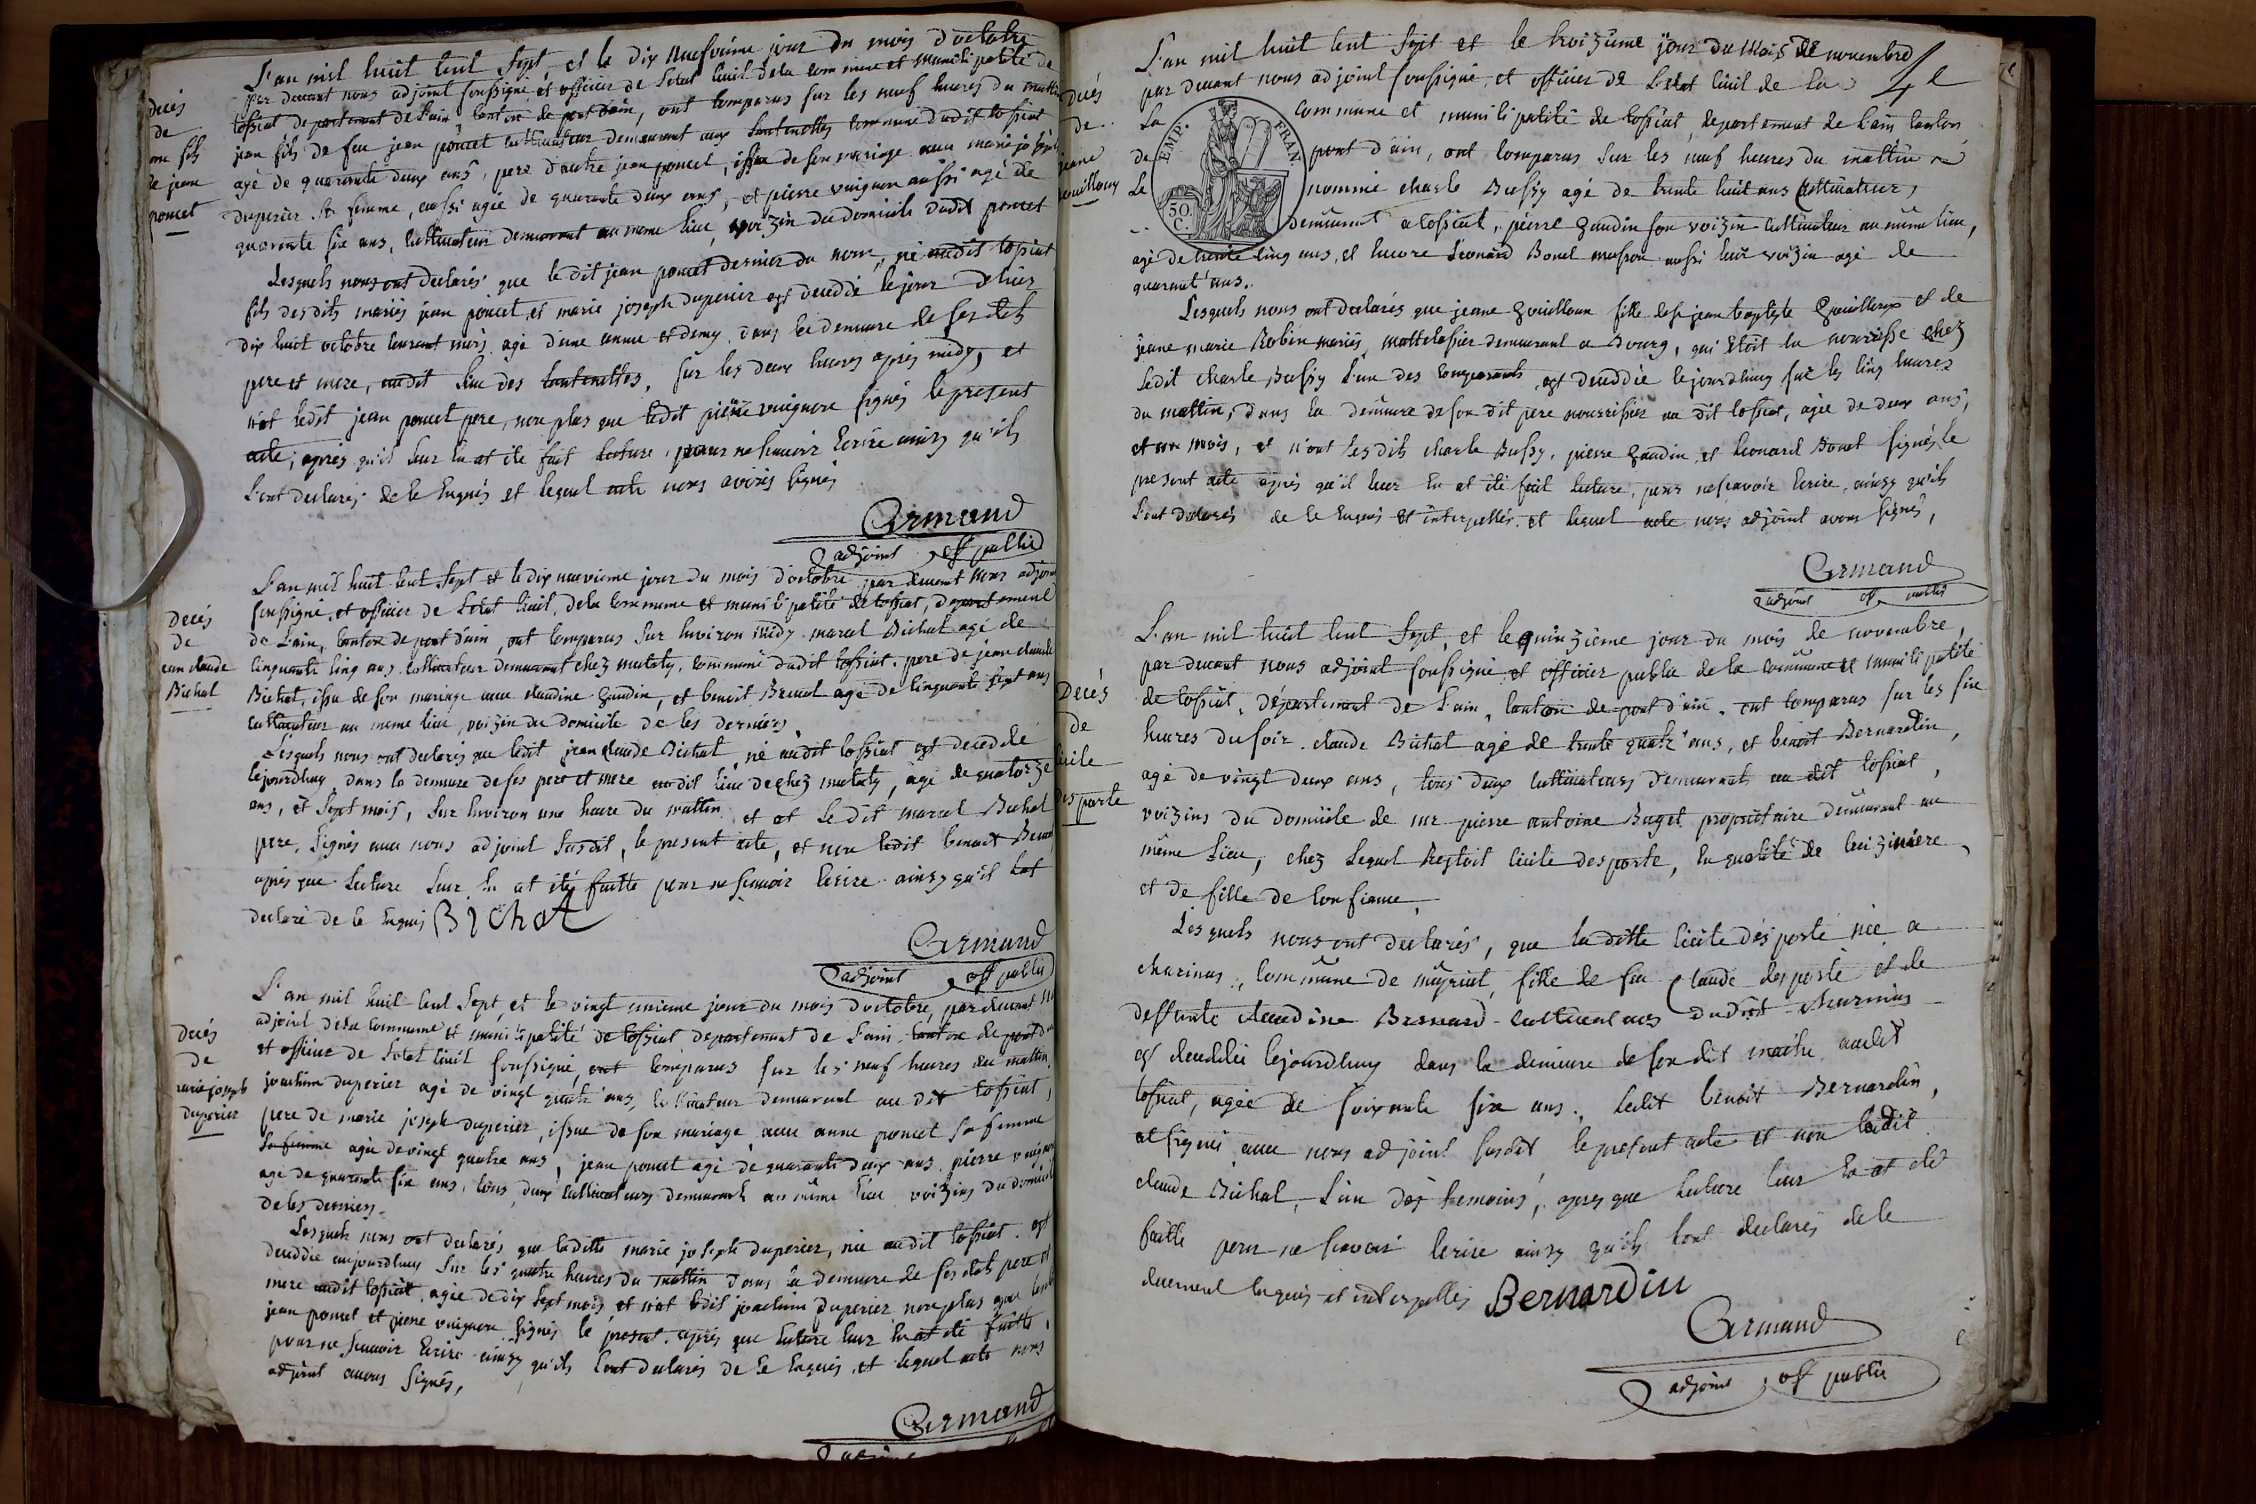 L'an mil huit cent sept et le dix neufvième jour du mois d'octobre
par devant nous adjoint soussigné et officier de l'etat civil de la commune et municipalité de
tossiat departement de l'ain canton de pont dain, ont comparus sur les neuf heures du mattin
jean fils de feu jean poncet cultivateur demeurant aux commune dudit tossiat
agé de quarante deux ans, pere d'autre jean poncet, issu de son mariage avec marie joseph
duperier sa femme, aussi agée de quarante deux ans, et pierre vuignon aussi agé de
quarante six ans, cultivateur demeurant au meme lieu, voizin du domicile dudit poncet
Lesquels nous ont declarés que le dit jean poncet dernier du nom, né audit tossiat
fils desdits mariés jean poncet et marie joseph duperier est deceddé le jour d'hier
dix huit octobre courant mois, agé d'une année et demy, dans la demeure de ses dits
pere et mere, audit lieu des sur les deux heures après midy, et
n'ont ledit jean poncet pere, non plus que ledit pierre vuignon signés le present
acte, apres qu'il leur en at été fait lecture, pour ne scavoir écrire ainsy qu'ils
l'ont declarés de ce enquis et lequel acte nous avons signés
Armand
adjoint off public
decés
de
jean
poncet
L'an mil huit cent sept et le dix neuvieme jour du mois d'octobre par devant nous adjoint
soussigné, et officier de l'etat civil, de la commune et municipalité de tossiat, departement
de l'ain, canton de pont d'ain, ont comparus sur environ midy marcel Bichat agé de
cinquante cinq ans cultivateur demeurant chez mulaty, commune dudit tossiat, pere de jean claude
Bichat, issu de son mariage avec claudine gaudin, et benoit agé de cinquante sept ans
cultivateur au meme lieu, voizin du domicile de ces derniers
Lesquels nous ont declarés que ledit jean claude Bichat, né audit tossiat est deceddé
cejourdhuy dans la demeure de ses pere et mere audit lieu de chez mulaty, agé de quatorze
ans, et sept mois, sur environ une heure du mattin et at le dit marcel Bichat
pere, signés avec nous adjoint susdit, le present acte, et non ledit benoit
après que lecture leur en at été faitte pour ne scavoir ecrire ainsy qu'il l'at
declaré de ce enquis Bichat
Armand
adjoint off public
Decés
de
jean claude
Bichat
L'an mil huit cent sept, et le vingt unieme jour du mois d'octobre, par devant nous
adjoint de la commune et municipalité de tossiat departement de l'ain canton de pont d'ain
et officier de l'etat civil soussigné, ont comparus sur les neuf heures du mattin
joachim duperier agé de vingt quatre ans, cultivateur demeurant au dit tossiat,
pere de marie joseph duperier, issue de son mariage avec anne poncet sa femme
sa femme agée de vingt quatre ans, jean poncet agé de quarante deux ans pierre vuignon
agé de quarante six ans, tous deux cultivateurs demeurant au même lieu voizins du domicile
de ces derniers.
Lesquels nous ont declarés que laditte marie joseph duperier, née audit tossiat est
deceddée aujourdhuy sur les quatre heures du mattin dans la demeure de ses dits pere et
mere audit tossiat, agée de dix sept mois et n'ont ledit joachim duperier non plus que
jean poncet et pierre vuignon signés le present après que lecture leur en at été faitte,
pour ne scavoir ecrire ainsy qu'ils l'ont declarés de ce enquis, et lequel acte nous
adjoint avons signés,
Armand
decés
de
marie joseph
duperier
L'an mil huit cent sept et le troizieme jour du mois de novembre
par devant nous adjoint soussigné, et officier de l'etat civil de la
La commune et municipalité de tossiat, departement de l'ain canton
de pont d'ain, ont comparus sur les neuf heures du mattin
Le nommé charle Bussy agé de trente huit ans cultivateur,
demeurant a tossiat, pierre gaudin son voizin cultivateur au même lieu,
agé de trente cinq ans, et encore Leonard Bonet masson aussi leur voizin agé de
quarant'ans.
EMP. FRAN
50. C.
Lesquels nous ont declarés que jeane gouilloux fille de jean baptiste gouilloux et de
jeane marie Robin mariés, mattelassier demeurant a Bourg, qui étoit en nourisse chez
ledit charle Bussy l'un des comparants, est deceddée le jourdhuy sur les cinq heures
du mattin, dans la demeure de son dit pere nourrissier au dit tossiat, agée de deux ans,
et un mois, et n'ont lesdits charle Bussy, pierre gaudin et Leonard Bonet signés le
present acte après qu'il leur en at été fait lecture, pour ne scavoir ecrire, ainsy qu'ils
l'ont declarés de ce enquis et interpellés. et lequel acte nous adjoint avons signés,
Armand
adjoint off public
decés
de
jeane
gouilloux
L'an mil huit cent sept, et le quinzième jour du mois de novembre,
par devant nous adjoint soussigné et officier public de la commune et municipalité
de tossiat, département de l'ain, canton de pont d'ain, ont comparus sur les six
heures du soir, claude Bichat agé de trente quatr'ans, et benoit Bernardin,
agé de vingt deux ans, tous deux cultivateurs demeurant au dit tossiat,
voizins du domicile de mr pierre antoine Buget propriétaire demeurant au
même lieu, chez lequel restoit cicile desporte, en qualité de cuizinière,
et de fille de confiance,
Lesquels nous ont declarés, que laditte cicile desporte née a
charinas, commune de meyriat, fille de feu Claude desporte et de
deffunte claudine Bernard cultivateurs dudit charinas
est deceddée cejourdhuy dans la demeure de son dit maitre audit
tossiat, agée de soixante six ans. ledit benoit Bernardin,
at signé avec nous adjoint susdit le present acte et non ledit
claude Bichat, l'un des temoins, apres que lecture leur en at été
faitte pour ne scavoir ecrire ainsy qu'ils l'ont declarés de ce
duement enquis et interpellés Bernardin
Armand
adjoint off public
Decés
de
cicile
desporte